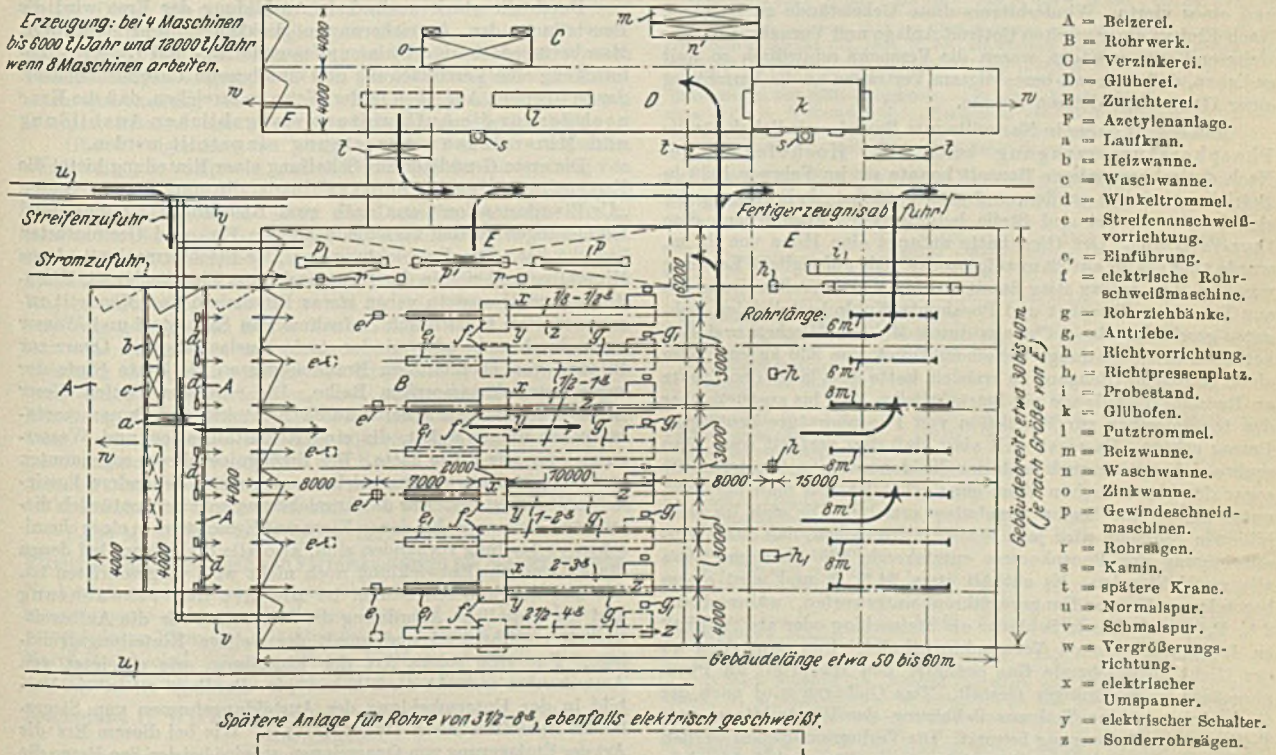 Erzeugung: bei 4 Maschinen
bis 6000 t/Jahr und 12000 t/Jahr
wenn 8 Maschinen arbeiten.
4000
4000
w
F
o
C
l
t
s
D
m
n
k
s
t
t
w
u₁
Streifenzufuhr
h₁
Stromzufuhr
E
Fertigerzeugnisabfuhr
E
p₁
r
p¹
r
p
6000
h₁
i₁
A
b
c
a
d
A
w
4000
4000
4000
v
e
B
e₁
f
x
y
z
g₁
1/8 - 1/2"
1/2 - 1"
1 - 2"
2 - 3"
2 1/2 - 4"
8000
7000
2000
10000
3000
3000
3000
3000
4000
8000
15000
Rohrlänge:
6m
6m
8m
8m
8m
8m
8m
h
h₁
Gebäudebreite etwa 30 bis 40m
(je nach Größe von E)
Gebäudelänge etwa 50 bis 60m
u₁
Spätere Anlage für Rohre von 3 1/2 - 8", ebenfalls elektrisch geschweißt.
A = Beizerei.
B = Rohrwerk.
C = Verzinkerei.
D = Glüherei.
E = Zurichterei.
F = Azetylenanlage.
a = Laufkran.
b = Heizwanne.
c = Waschwanne.
d = Winkeltrommel.
e = Streifenanschweiß-
vorrichtung.
e₁ = Einführung.
f = elektrische Rohr-
schweißmaschine.
g = Rohrziehbänke.
g₁ = Antriebe.
h = Richtvorrichtung.
h₁ = Richtpressenplatz.
i = Probestand.
k = Glühofen.
l = Putztrommel.
m = Beizwanne.
n = Waschwanne.
o = Zinkwanne.
p = Gewindeschneid-
maschinen.
r = Rohrsägen.
s = Kamin.
t = spätere Krane.
u = Normalspur.
v = Schmalspur.
w = Vergrößerungs-
richtung.
x = elektrischer
Umspanner.
y = elektrischer Schalter.
z = Sonderrohrsägen.